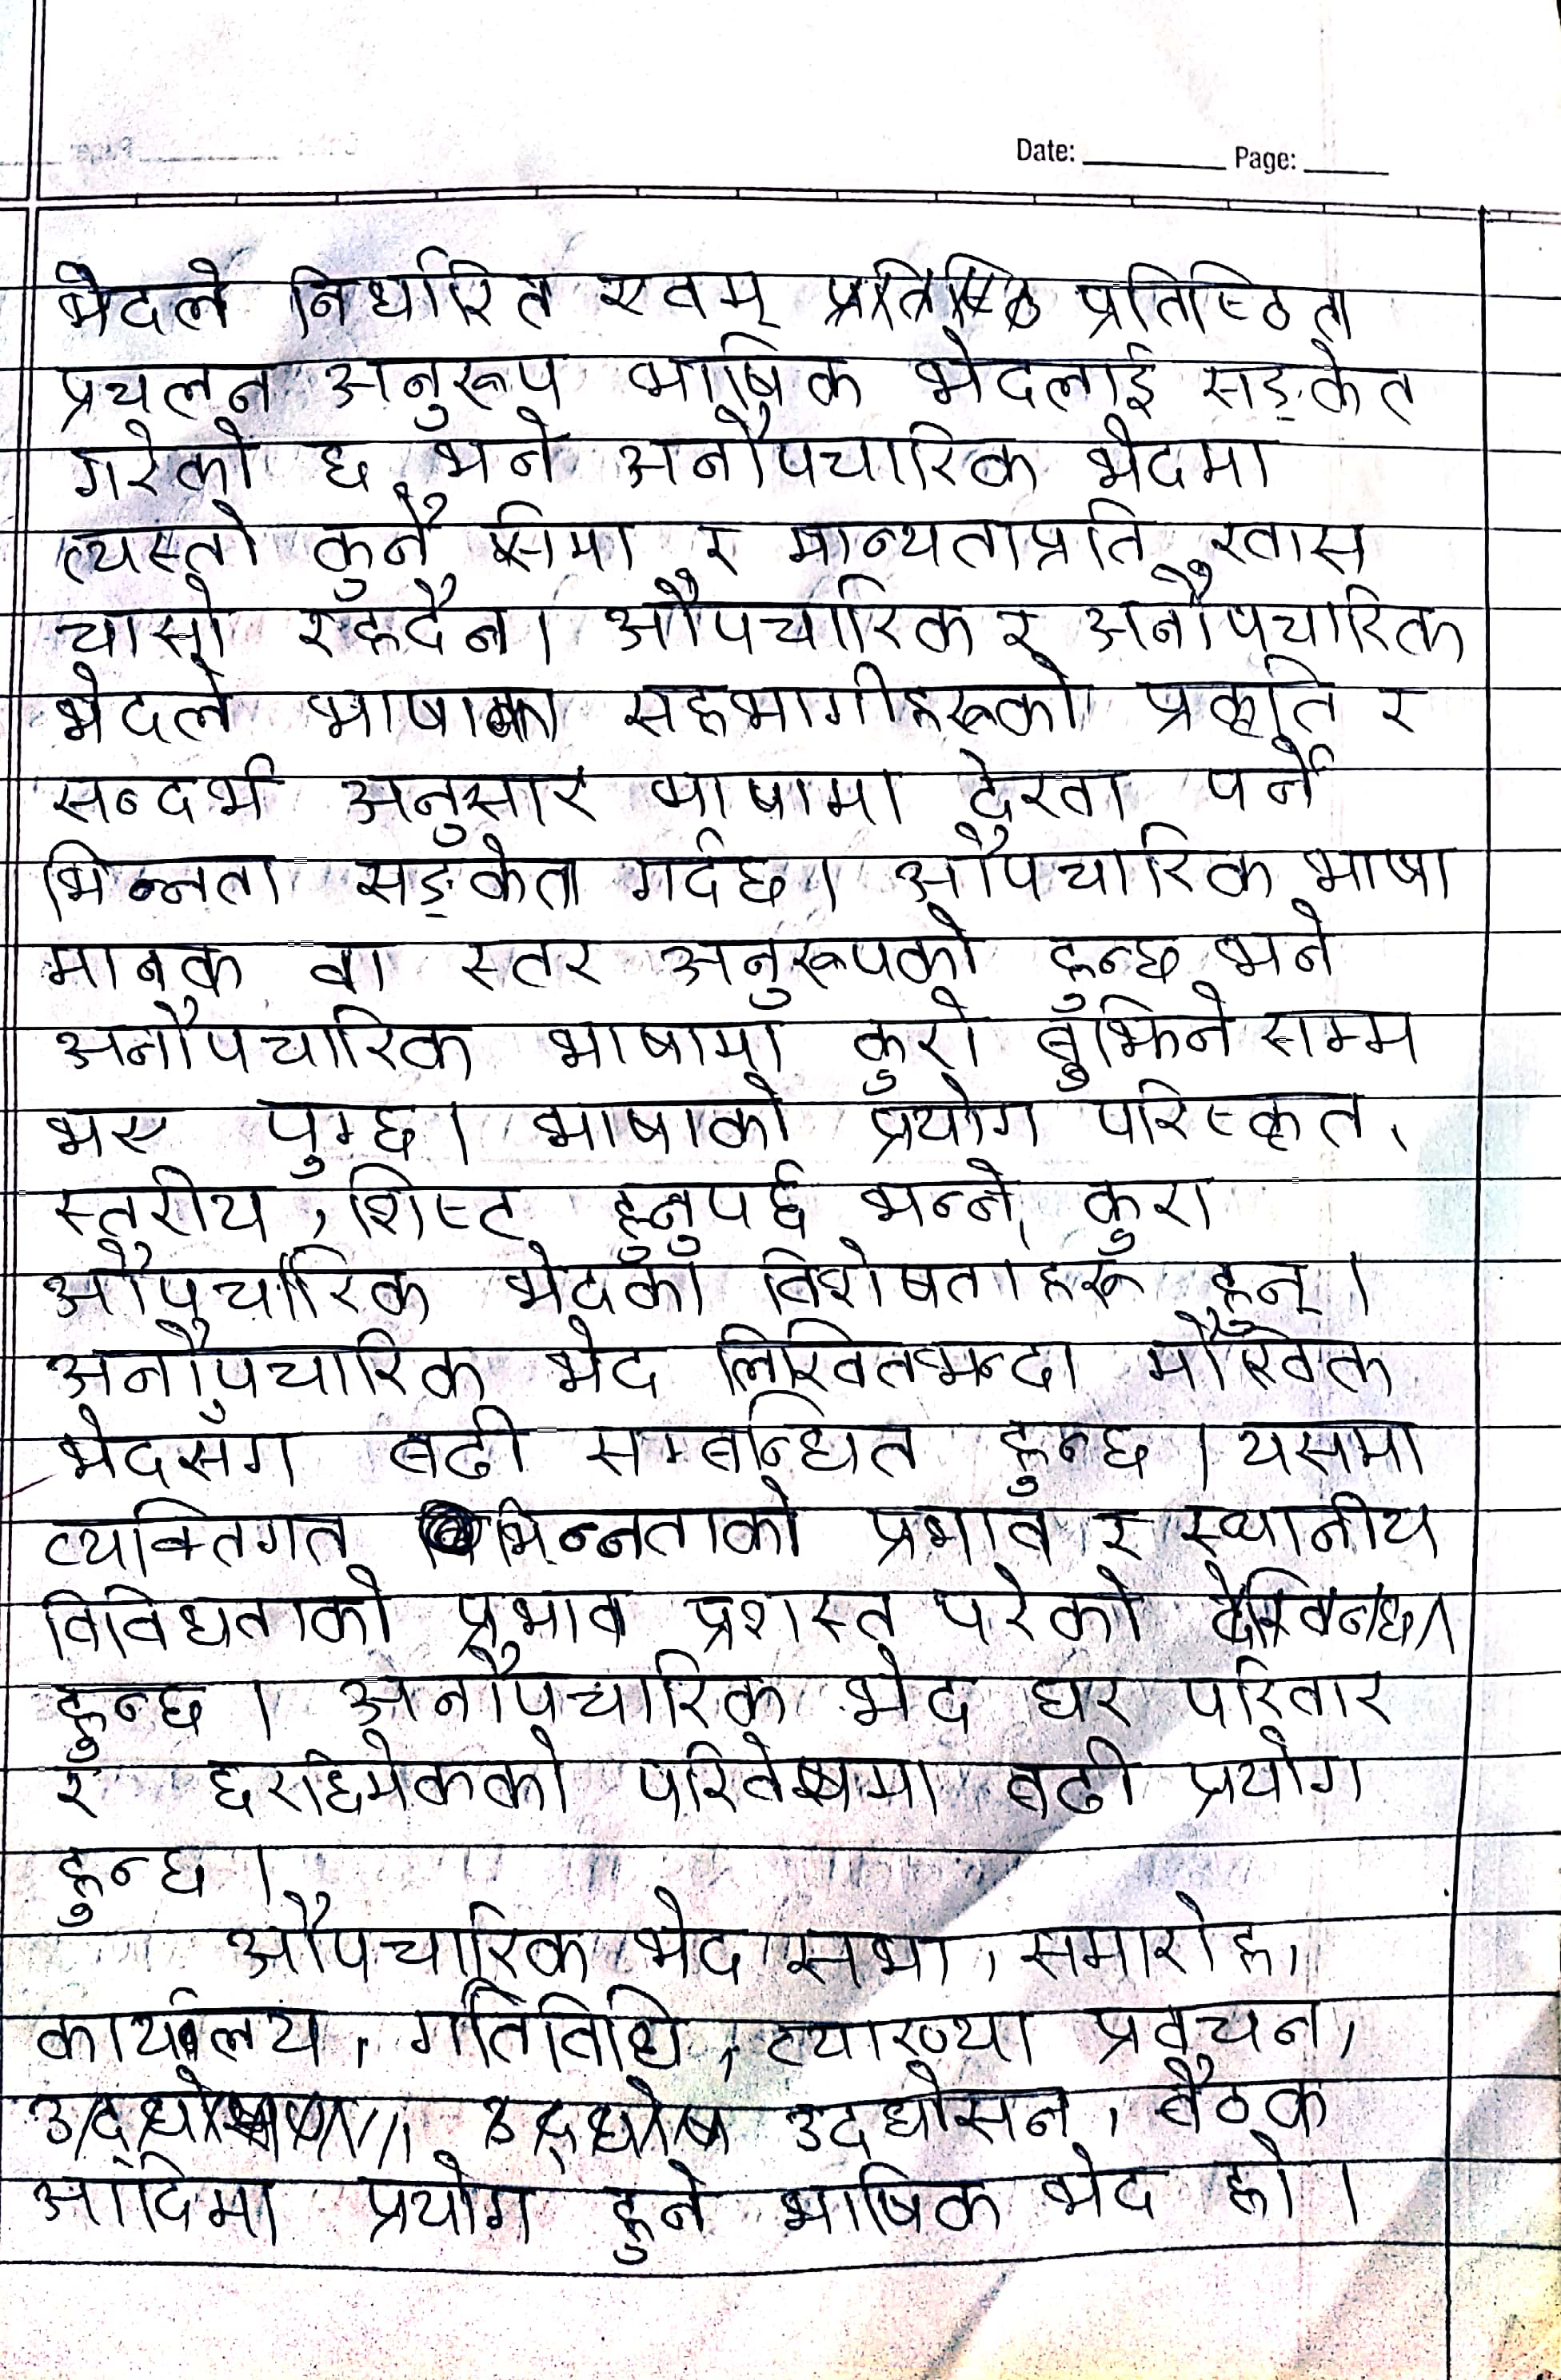 Date: ________ Page: _____
भेदले निर्धारित एवम् प्रतिष्ठित
प्रचलन अनुरूप भाषिक भेदलाई सङ्केत
गरेको छ भने अनौपचारिक भेदमा
त्यस्तो कुनै सिमा र मान्यताप्रति खास
चासो रहदैन। औपचारिक र अनौपचारिक
भेदले भाषाका सहभागीहरूको प्रकृति र
सन्दर्भ अनुसार भाषामा देखा पर्ने
भिन्नता सङ्केत गर्दछ। औपचारिक भाषा
मानक वा स्तर अनुरूपको हुन्छ भने
अनौपचारिक भाषामा कुरो बुझिने सम्म
भए पुग्छ। भाषाको प्रयोग परिस्कृत,
स्तरीय, शिष्ट हुनुपर्छ भन्ने कुरा
औपचारिक भेदका विशेषताहरू हुन्।
अनौपचारिक भेद लिखितभन्दा मौखिक
भेदसँग बढी सम्बन्धित हुन्छ। यसमा
व्यक्तिगत भिन्नताको प्रभाव र स्थानीय
विविधताको प्रभाव प्रशस्त परेको
हुन्छ। अनौपचारिक भेद घर परिवार
र छरछिमेकको परिवेषमा बढी प्रयोग
हुन्छ।
औपचारिक भेद सभा, समारोह,
कार्यालय, गतिविधि, व्याख्या प्रवचन,
उदघोसन, बैठक
आदिमा प्रयोग हुने भाषिक भेद हो।